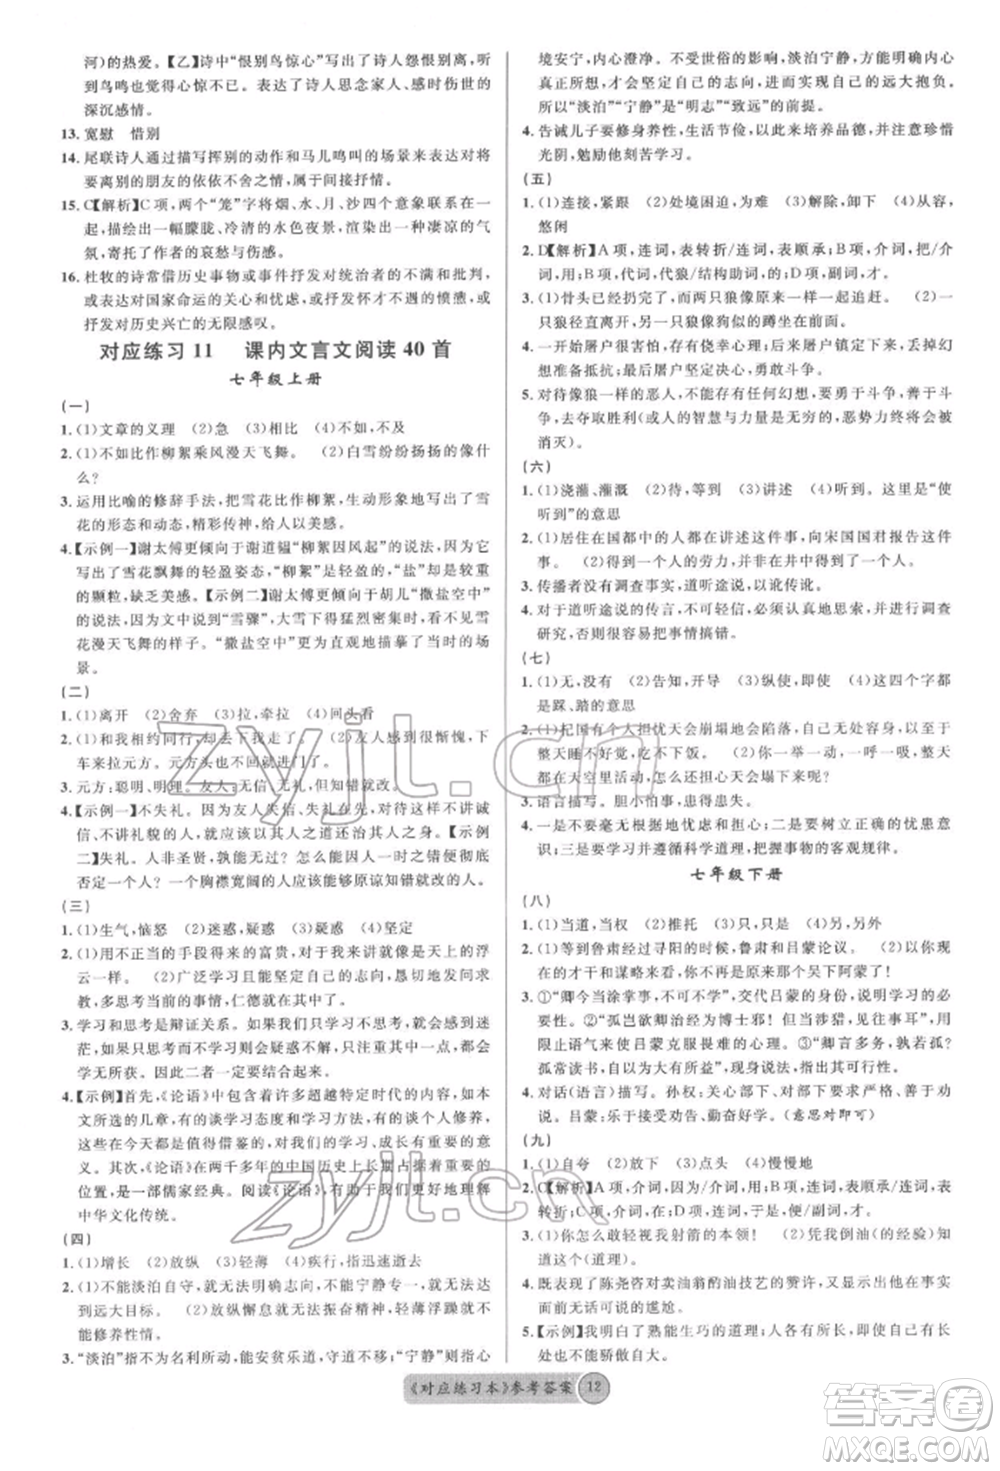 河)的热爱。【乙】诗中“恨别鸟惊心”写出了诗人怨恨别离,听
到鸟鸣也觉得心惊不已。表达了诗人思念家人、忧虑国事的
深沉感情。
13. 宽慰 惜别
14. 尾联诗人通过描写挥别的动作和马儿鸣叫的场景来表达对
将要离别的朋友的依依不舍之情,属于间接抒情。
15. C【解析】C项,两个“笼”字将烟、水、月、沙四个意象联系在一
起,描绘出一幅朦胧、冷清的水色夜景,渲染出一种凄凉的气
氛,寄托了作者的哀愁与伤感。
16. 杜牧的诗常借历史事物或事件抒发对统治者的不满和批判,
或表达对国家命运的关心和忧虑,或抒发怀才不遇的愤懑,或
抒发对历史兴亡的无限感叹。
对应练习 11 课内文言文阅读 40 首
七年级上册
(一)
1. (1)文章的义理 (2)急 (3)相比 (4)不如,不及
2. (1)不如比作柳絮乘风漫天飞舞。 (2)白雪纷纷扬扬的像什
么?
3. 运用比喻的修辞手法,把雪花比作柳絮,生动形象地写出了雪
花的形态和动态,精彩传神,给人以美感。
4.【示例一】谢太傅更倾向于谢道韫“柳絮因风起”的说法,因其
写出了雪花飘舞的轻盈姿态,“柳絮”是轻盈的,“盐”却是较重
的颗粒,缺乏美感。【示例二】谢太傅更倾向于胡儿“撒盐空中”
的说法,因为文中说到“雪骤”,大雪下得猛烈密集,不像雪
花漫天飞舞的样子。“撒盐空中”更为直观地描摹了当时的场
景。
(二)
1. (1)离开 (2)舍弃 (3)拉,牵拉 (4)回头看
2. (1)和我相约同行,却丢下我走了。 (2)友人感到很惭愧,下
车来拉元方。元方头也不回就进门了。
3. 元方:聪明、明理。友人:无信、无礼、知错就改。
4.【示例一】不失礼。因为友人失信、失礼在先,对待不讲诚
信、不讲礼貌的人,就应该以其人之道还治其人之身。【示例
二】失礼。人非圣贤,孰能无过?怎么能因一个人的过错全盘
否定一个人呢?一个胸襟宽阔的人应该能够原谅知错就改的人。
(三)
1. (1)生气,恼怒 (2)迷惑,疑惑 (3)疑惑 (4)坚定
2. (1)用不正当的手段得来的富贵,对于我来讲就像是天上的浮
云一样。 (2)广泛学习且能坚定自己的志向,恳切地发问求
教,多思考当前的事情,仁德就在其中了。
3. 学习和思考是辩证关系。如果我们只学习不思考,就会感到迷
茫,如果只是思考却不去学习,那么就会产生更多疑惑,甚至一
无所获。因此二者一定要结合进行。
4.【示例】首先,《论语》中包含着许多超越特定时代的内容,如本
文所选的几章,有的谈学习态度和学习方法,有的谈个人修养,
这些在今天都是对人们的学习、成长有着重要意义的重要的意
义。其次,《论语》在两千多年的中国历史上,具有举足轻重的
位置,是一部儒家经典。阅读《论语》,能够帮助我们更好地理解
中华文化传统。
(四)
1. (1)增长 (2)放纵 (3)轻薄 (4)疾行,指迅速逝去
2. (1)不能淡泊自守,就无法明确志向,不能宁静专一,就无法达到
远大目标。 (2)放纵懈怠就无法振奋精神,轻薄浮躁就不
能修养性情。
3. “淡泊”指不为名利所动,能安贫乐道、守道不移;“宁静”则指心
境安宁,内心澄净。一个人不受世俗的干扰,淡泊宁静,方能明确内心
真正所想,来坚定自己的志向,进而实现自己的远大抱负。
所以“淡泊”“宁静”是“明志”“致远”的前提。
4. 告诫儿子要修身养性,生活节俭,以此来培养品德,并注意珍惜
光阴,勉励他刻苦学习。
(五)
1. (1)连接,紧跟 (2)处境困迫,为难 (3)解除,卸下 (4)从容,
悠闲
2. D【解析】A项,连词,表转折/连词,表顺承;B项,介词,把/介
词,用;C项,代词,代狼/结构助词,的;D项,副词,才。
3. (1)骨头已经扔完了,但是两只狼像原来一样一起追赶。 (2)一
只狼径直离开,另外一只狼像狗似的蹲坐在前面。
4. 一开始屠户迁就退让,存有侥幸心理,但狼却步步紧逼,情况危
急,从而让屠户坚定决心,奋起杀狼。
5. 对待像狼一样的恶人,不能存有任何幻想,要勇于斗争,善于斗
争,去夺取胜利(或人的智慧与力量是无穷的,恶势力终将会被
消灭)。
(六)
1. (1)浇灌,灌溉 (2)待,等到 (3)讲述 (4)听到。这里是“使
听到”的意思
2. (1)居住在国都中的人都在讲述这件事,向宋国国君报告这件
事。 (2)得到一个人的劳力,并非在井中得到了一个人。
3. 传播者没有调查事实,道听途说,以讹传讹。
4. 对于道听途说的传言,不可轻信,必须认真地加以求证,并进行调查
研究,否则很容易把事情搞错。
(七)
1. (1)无,没有 (2)告知,开导 (3)纵使,即使 (4)这四个字都
是踩、踏的意思
2. (1)杞国有个人担忧天会崩塌地会陷落,自己无处容身,以至于
整天睡不好觉,吃不下饭。 (2)你一举一动,一呼一吸,整天
都在天空里活动,怎么还担心天会塌下来呢?
3. 语言描写。胆小怕事、杞人忧天。
4. 一是不要毫无根据地忧虑和担心;二是要树立正确的忧患意
识;三是要探究并遵循科学道理,把握事物的客观规律。
七年级下册
(八)
1. (1)当道,当权 (2)推托 (3)只,只是 (4)另,另外
2. (1)等到鲁肃经过寻阳的时候,鲁肃和吕蒙论议。 (2)以你现
在的才干和谋略来看,你不再是以前的那个吴下阿蒙了!
3. ①“卿今当涂掌事,不可不学!”,交代吕蒙的身份,说明学习的必
要性。②“孤岂欲卿治经为博士邪!但当涉猎,见往事耳”,用有
限止语气消除了吕蒙克服畏难的心理。③“卿言多务,孰若孤?
孤常读书,自以为大有所益”,现身说法,指出其可行性。
4. 对话(语言)描写。孙权:关心部下、对部下要求严格、善于劝
说。吕蒙:乐于接受劝告、勤奋好学。(意思对即可)
(九)
1. (1)自夸 (2)放下 (3)点头 (4)慢慢地
2. C【解析】A项,介词,因为/介词,用;B项,连词,表承接/连词,
表转折;C项,介词,在/介词,从;D项,连词,便/副词,才。
3. (1)你怎么敢轻视我射箭的本领! (2)凭我倒油的(经验)
知道这个(道理)。
4. 既表现了陈尧咨对卖油翁酌油技艺的赞许,又写出了他在事实
面前无话可说的尴尬。
5.【示例】我明白了熟能生巧的道理;人各有所长,即使有长处,也
不能骄傲自大。
《对应练习本》参考答案 12
zyjl.cn
zyjl.cn
答案圈
MXQE.COM